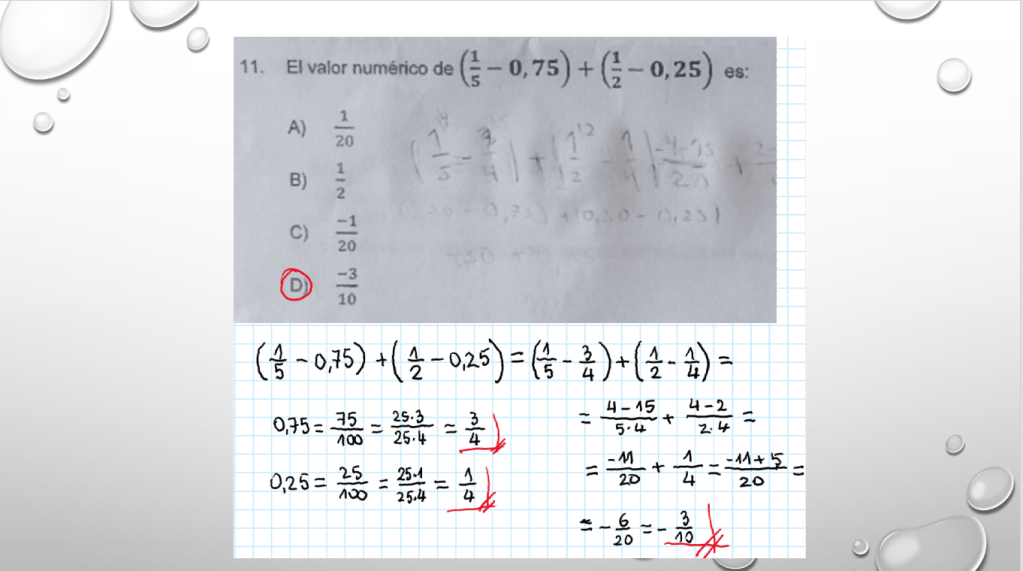 11. El valor numérico de (1/5 − 0,75) + (1/2 − 0,25) es:
A) 1/20
B) 1/2
C) −1/20
D) −3/10
(1/5 − 3/4) + (1/2 − 1/4)
(1/5 − 0,75) + (1/2 − 0,25) = (1/5 − 3/4) + (1/2 − 1/4) =
0,75 = 75/100 = 25·3/25·4 = 3/4
0,25 = 25/100 = 25·1/25·4 = 1/4
= 4−15/5·4 + 4−2/2·4 =
= −11/20 + 1/4 = −11+5/20 =
= −6/20 = −3/10